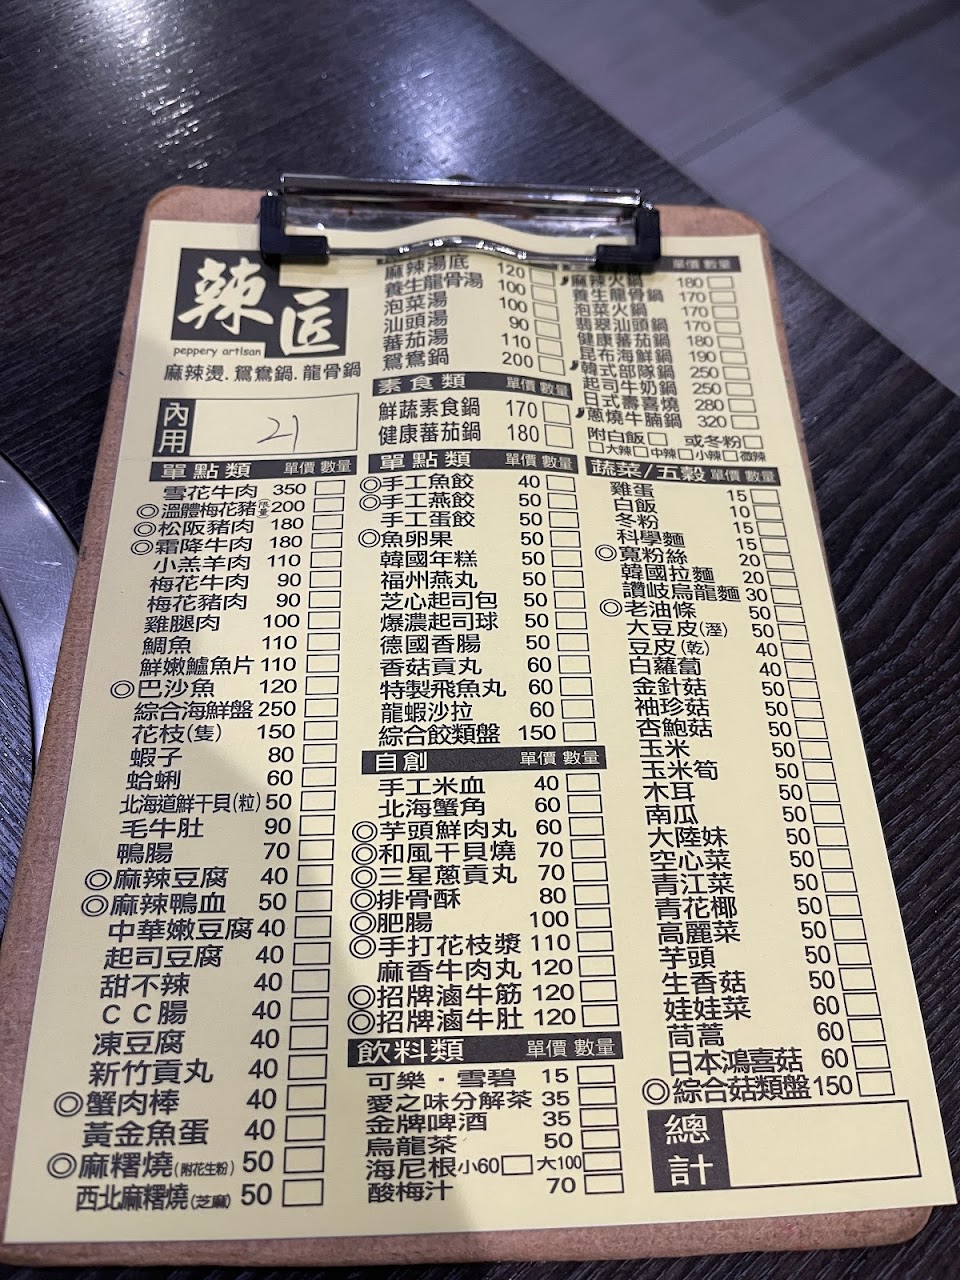 辣匠
peppery artisan
麻辣燙.鴛鴦鍋.龍骨鍋
內用 21
麻辣湯底 120
養生龍骨湯 100
泡菜湯 100
汕頭湯 90
蕃茄湯 110
鴛鴦鍋 200
素食類 單價 數量
鮮蔬素食鍋 170
健康蕃茄鍋 180
單價 數量
麻辣火鍋 180
養生龍骨鍋 170
泡菜火鍋 170
翡翠汕頭鍋 170
健康蕃茄鍋 180
昆布海鮮鍋 190
韓式部隊鍋 250
起司牛奶鍋 250
日式壽喜燒 280
蔥燒牛腩鍋 320
附白飯 或冬粉
大辣 中辣 小辣 微辣
單點類 單價 數量
雪花牛肉 350
◎溫體梅花豬(限量) 200
◎松阪豬肉 180
◎霜降牛肉 180
小羔羊肉 110
梅花牛肉 90
梅花豬肉 90
雞腿肉 100
鯛魚 110
鮮嫩鱸魚片 110
◎巴沙魚 120
綜合海鮮盤 250
花枝(隻) 150
蝦子 80
蛤蜊 60
北海道鮮干貝(粒) 50
毛牛肚 90
鴨腸 70
◎麻辣豆腐 40
◎麻辣鴨血 50
中華嫩豆腐 40
起司豆腐 40
甜不辣 40
CC腸 40
凍豆腐 40
新竹貢丸 40
◎蟹肉棒 40
黃金魚蛋 40
◎麻糬燒(附花生粉) 50
西北麻糬燒(芝麻) 50
單點類 單價 數量
◎手工魚餃 40
◎手工燕餃 50
手工蛋餃 50
◎魚卵果 50
韓國年糕 50
福州燕丸 50
芝心起司包 50
爆濃起司球 50
德國香腸 50
香菇貢丸 60
特製飛魚丸 60
龍蝦沙拉 60
綜合餃類盤 150
自創 單價 數量
手工米血 40
北海蟹角 60
◎芋頭鮮肉丸 60
◎和風干貝燒 70
◎三星蔥貢丸 70
◎排骨酥 80
◎肥腸 100
◎手打花枝漿 110
麻香牛肉丸 120
◎招牌滷牛筋 120
◎招牌滷牛肚 120
飲料類 單價 數量
可樂.雪碧 15
愛之味分解茶 35
金牌啤酒 35
烏龍茶 50
海尼根 小60 大100
酸梅汁 70
蔬菜/五穀 單價 數量
雞蛋 15
白飯 10
冬粉 15
科學麵 15
◎寬粉絲 20
韓國拉麵 20
讚岐烏龍麵 30
◎老油條 50
大豆皮(溼) 50
豆皮(乾) 40
白蘿蔔 40
金針菇 50
袖珍菇 50
杏鮑菇 50
玉米 50
玉米筍 50
木耳 50
南瓜 50
大陸妹 50
空心菜 50
青江菜 50
青花椰 50
高麗菜 50
芋頭 50
生香菇 50
娃娃菜 60
茼蒿 60
日本鴻喜菇 60
◎綜合菇類盤 150
總計